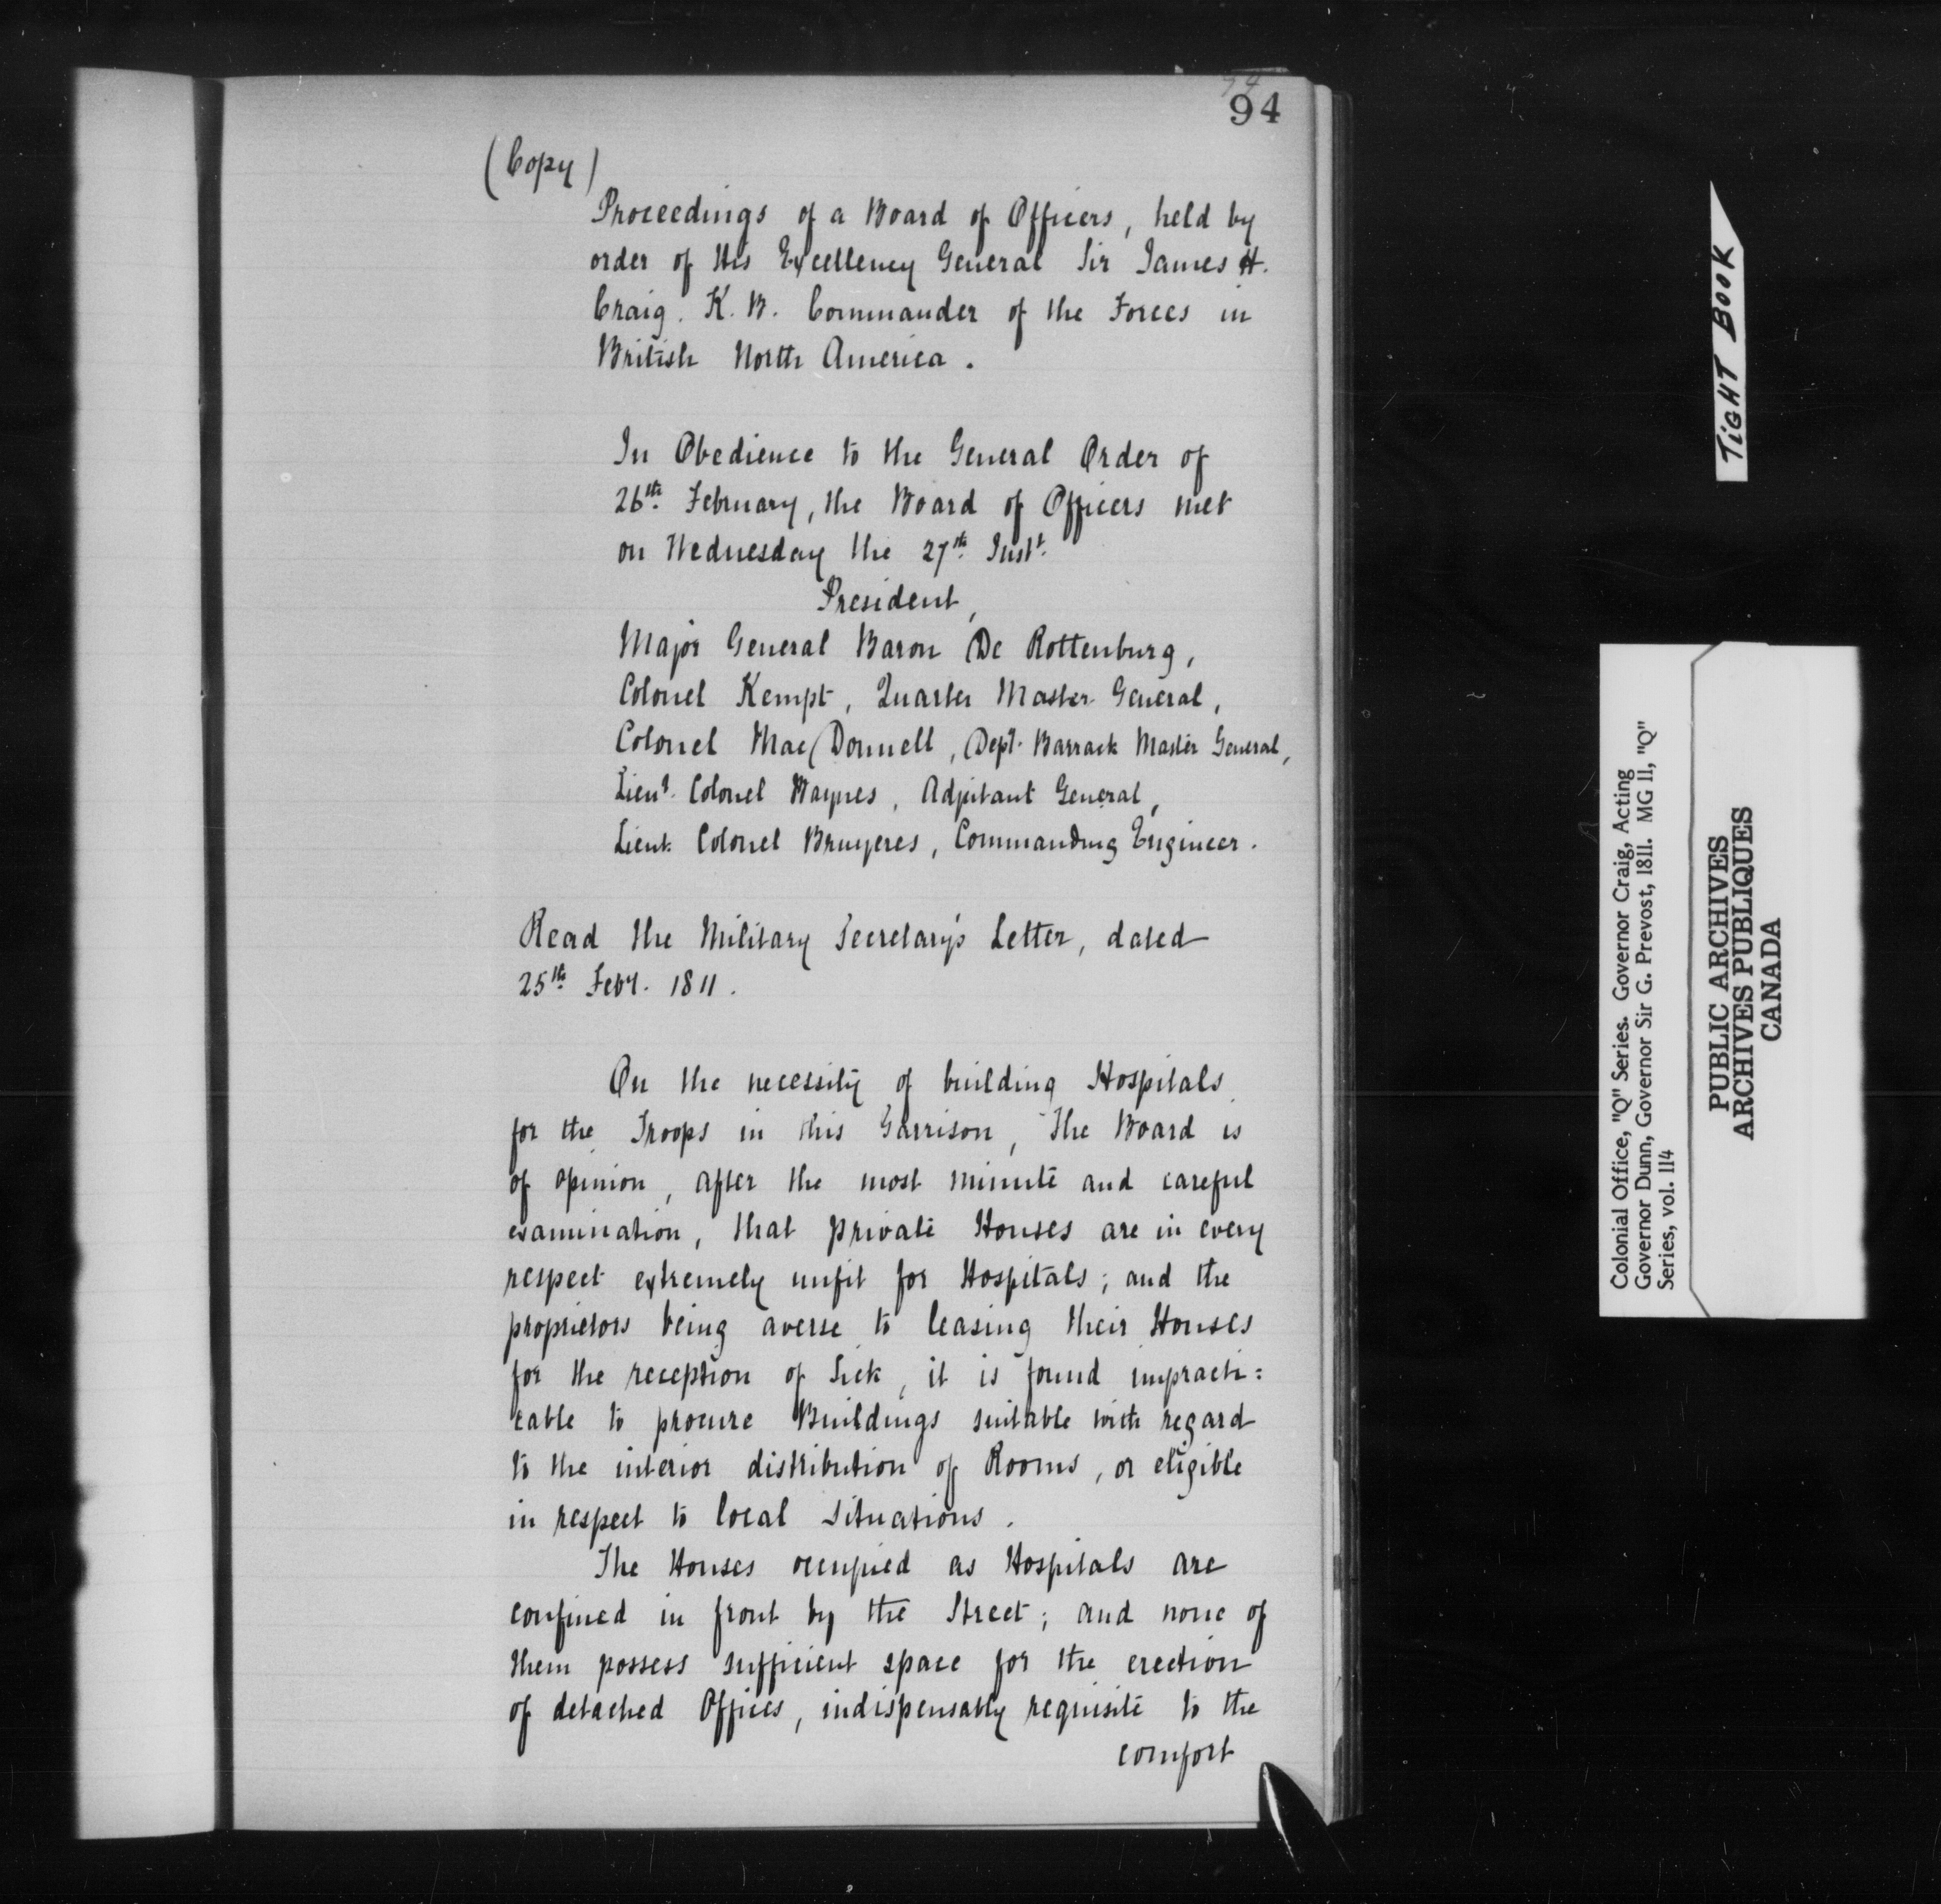 94
94
(Copy)
Proceedings of a Board of Officers, held by
order of His Excellency General Sir James H.
Craig. K. B. Commander of the Forces in
British North America.
In Obedience to the General Order of
26th February, the Board of Officers met
on Wednesday the 27th Inst.
President,
Major General Baron De Rottenburg,
Colonel Kempt, Quarter Master General,
Colonel Mac Donnell, Dept. Barrack Master General,
Lieut. Colonel Baynes, Adjutant General,
Lieut. Colonel Bruyeres, Commanding Engineer.
Read the Military Secretary's Letter, dated
25th Feby. 1811.
On the necessity of building Hospitals
for the Troops in this Garrison, The Board is
of opinion, after the most minute and careful
examination, that private Houses are in every
respect extremely unfit for Hospitals; and the
proprietors being averse to leasing their Houses
for the reception of Sick, it is found impracti=
cable to procure Buildings suitable with regard
to the interior distribution of Rooms, or eligible
in respect to local situations.
The Houses occupied as Hospitals are
confined in front by the Street; and none of
them possess sufficient space for the erection
of detached Offices, indispensably requisite to the
comfort
TIGHT BOOK
Colonial Office, "Q" Series. Governor Craig, Acting
Governor Dunn, Governor Sir G. Prevost, 1811. MG 11, "Q"
Series, vol. 114
PUBLIC ARCHIVES
ARCHIVES PUBLIQUES
CANADA